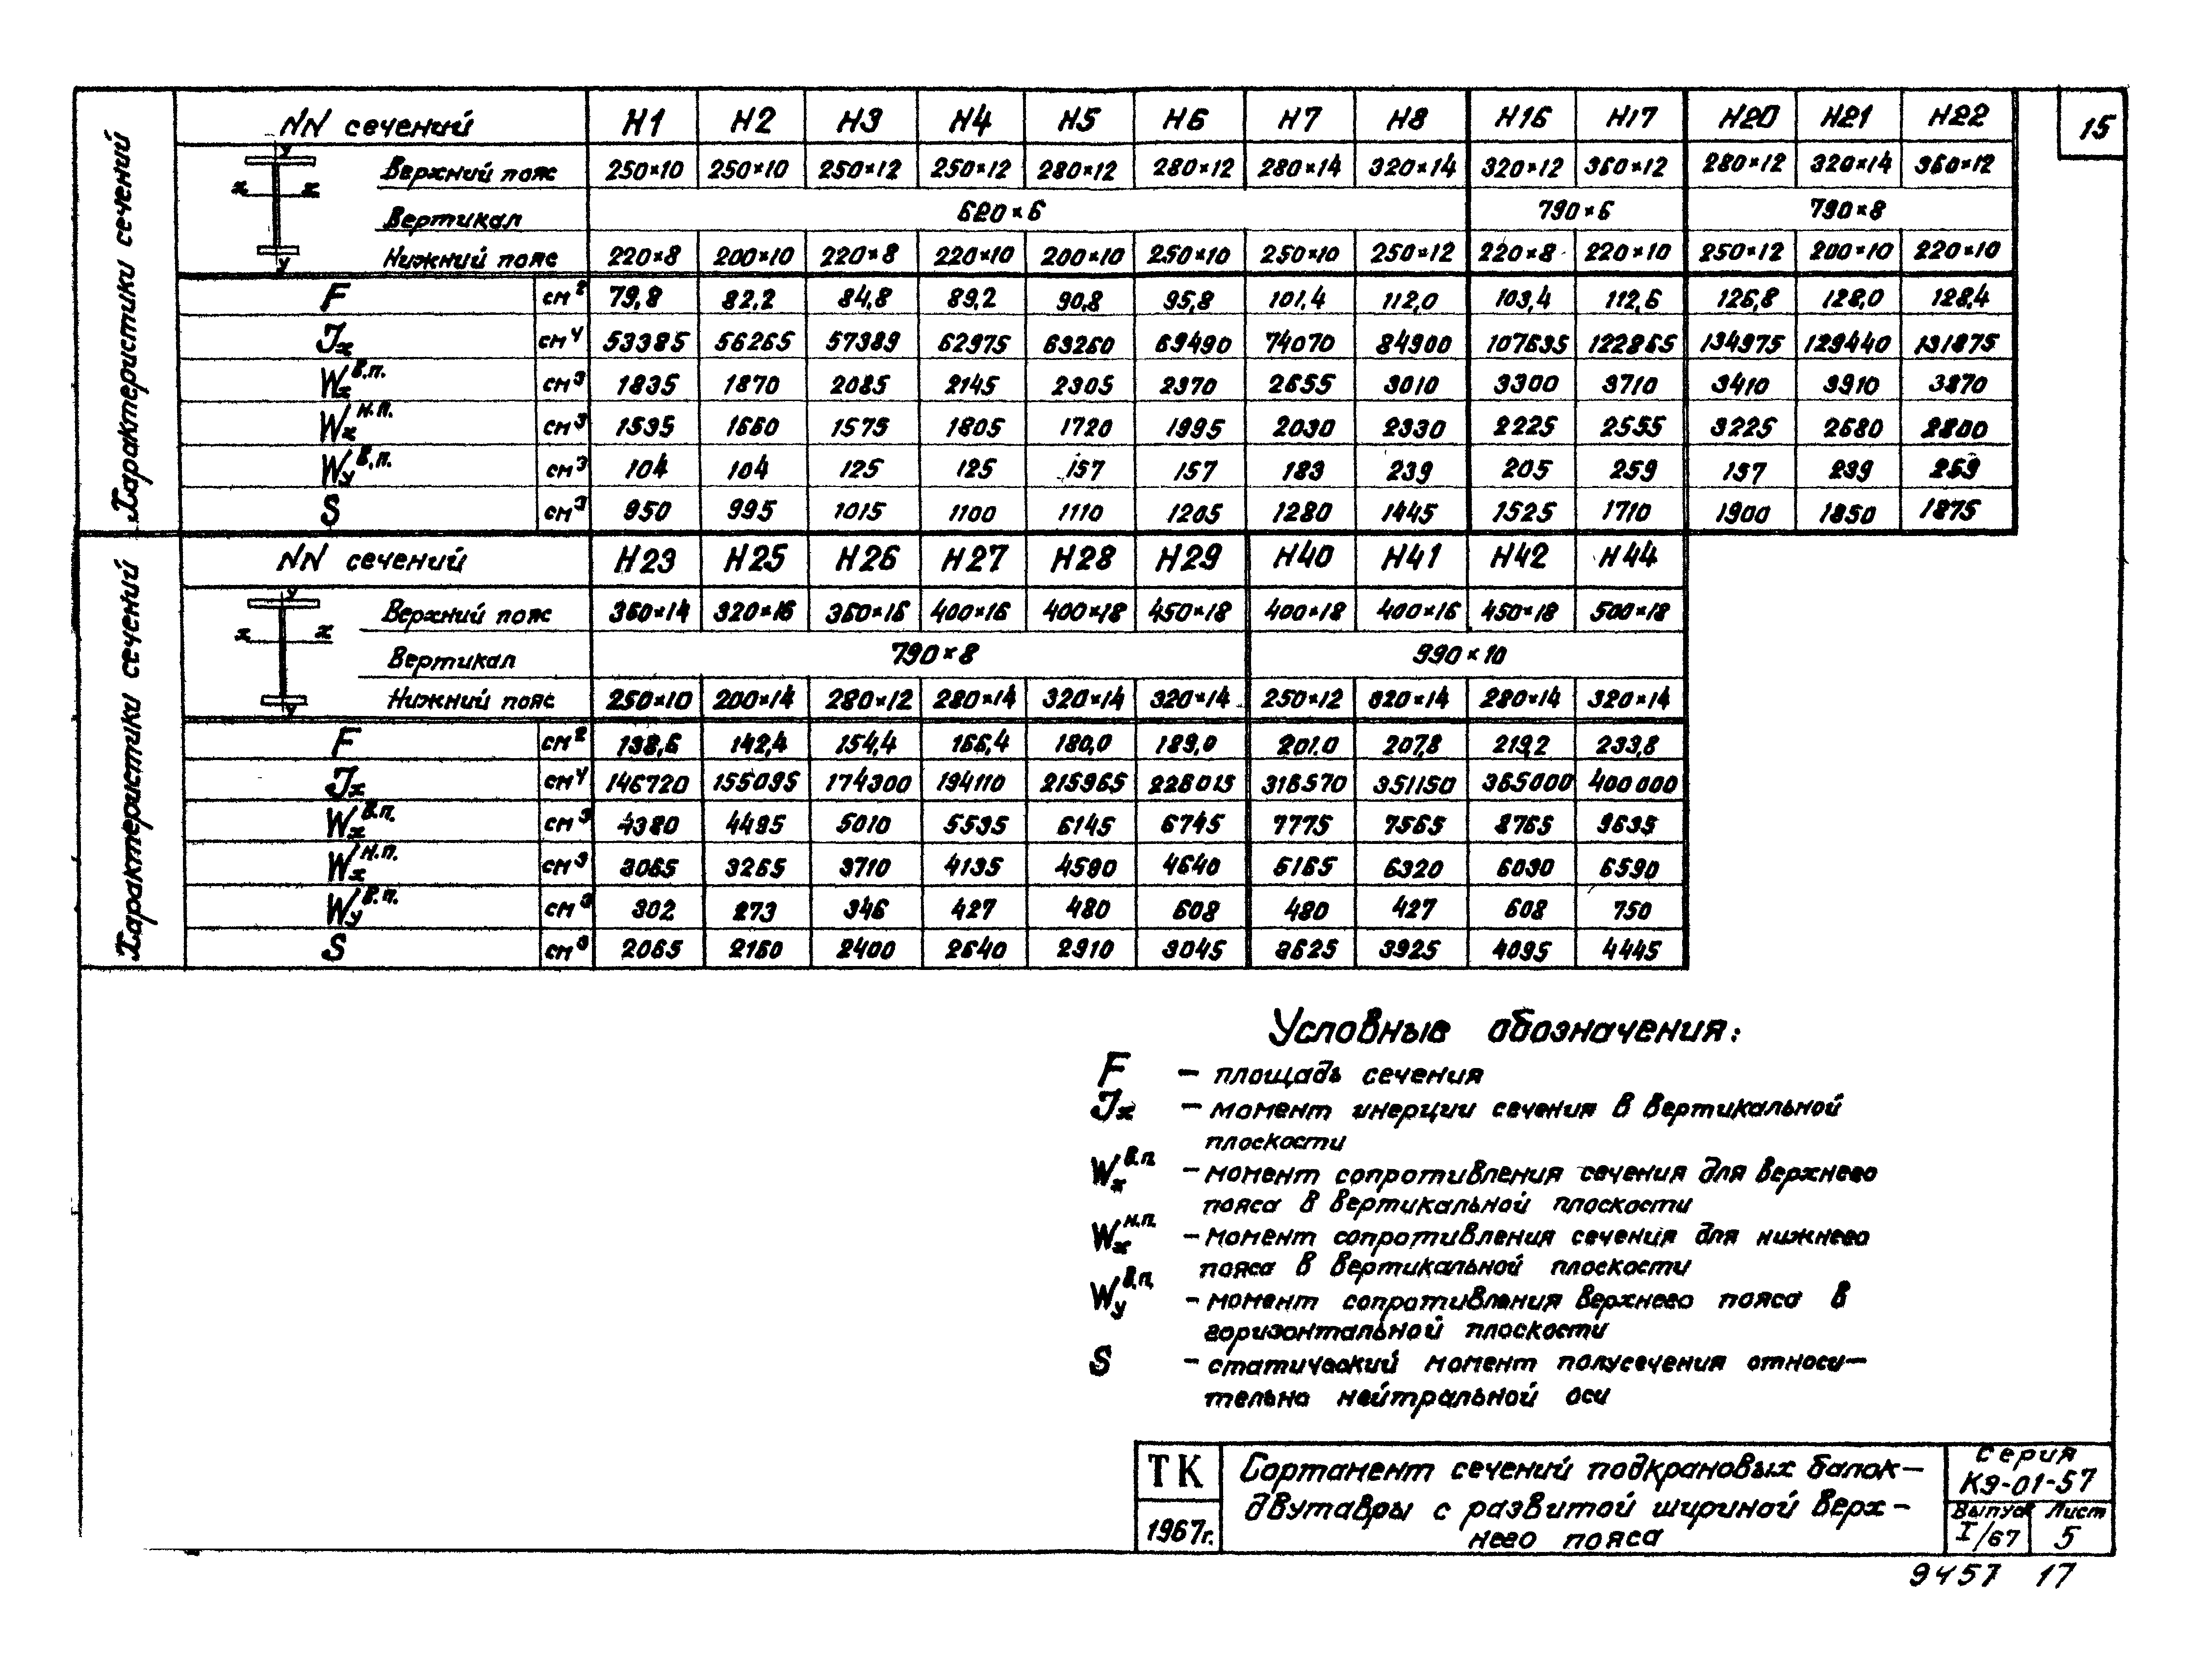 15
Характеристики сечений
NN сечений Н1 Н2 Н3 Н4 Н5 Н6 Н7 Н8 Н16 Н17 Н20 Н21 Н22
y
Верхний пояс 250×10 250×10 250×12 250×12 280×12 280×12 280×14 320×14 320×12 360×12 280×12 320×14 360×12
x x
Вертикал 620×6 790×6 790×8
Нижний пояс 220×8 200×10 220×8 220×10 200×10 250×10 250×10 250×12 220×8 220×10 250×12 200×10 220×10
y
F см² 79,8 82,2 84,8 89,2 90,8 95,8 101,4 112,0 103,4 112,6 126,8 128,0 128,4
Jx см⁴ 53385 56265 57389 62975 63260 69490 74070 84900 107635 122865 134975 129440 131875
Wx в.п. см³ 1835 1870 2085 2145 2305 2370 2655 3010 3300 3710 3410 3910 3870
Wx н.п. см³ 1535 1660 1575 1805 1720 1995 2030 2330 2225 2555 3225 2680 2800
Wy в.п. см³ 104 104 125 125 157 157 183 239 205 259 157 239 259
S см³ 950 995 1015 1100 1110 1205 1280 1445 1525 1710 1900 1850 1875
Характеристики сечений
NN сечений Н23 Н25 Н26 Н27 Н28 Н29 Н40 Н41 Н42 Н44
y
Верхний пояс 360×14 320×16 360×16 400×16 400×18 450×18 400×18 400×16 450×18 500×18
x x
Вертикал 790×8 990×10
Нижний пояс 250×10 200×14 280×12 280×14 320×14 320×14 250×12 320×14 280×14 320×14
y
F см² 138,6 142,4 154,4 166,4 180,0 189,0 201.0 207,8 219,2 233,8
Jx см⁴ 146720 155095 174300 194110 215965 226015 316570 351150 365000 400000
Wx в.п. см³ 4380 4495 5010 5535 6145 6745 7775 7565 8765 9635
Wx н.п. см³ 3065 3265 3710 4135 4590 4640 5165 6320 6030 6590
Wy в.п. см³ 302 273 346 427 480 608 480 427 608 750
S см³ 2065 2160 2400 2640 2910 3045 3625 3925 4095 4445
Условные обозначения:
F – площадь сечения
Jx – момент инерции сечения в вертикальной
плоскости
Wx в.п. – момент сопротивления сечения для верхнего
пояса в вертикальной плоскости
Wx н.п. – момент сопротивления сечения для нижнего
пояса в вертикальной плоскости
Wy в.п. – момент сопротивления верхнего пояса в
горизонтальной плоскости
S – статический момент полусечения относи–
тельно нейтральной оси
ТК
1967г.
Сортамент сечений подкрановых балок–
двутавры с развитой шириной верх–
него пояса
Серия
КЭ-01-57
Выпуск Лист
I/67 5
9457 17